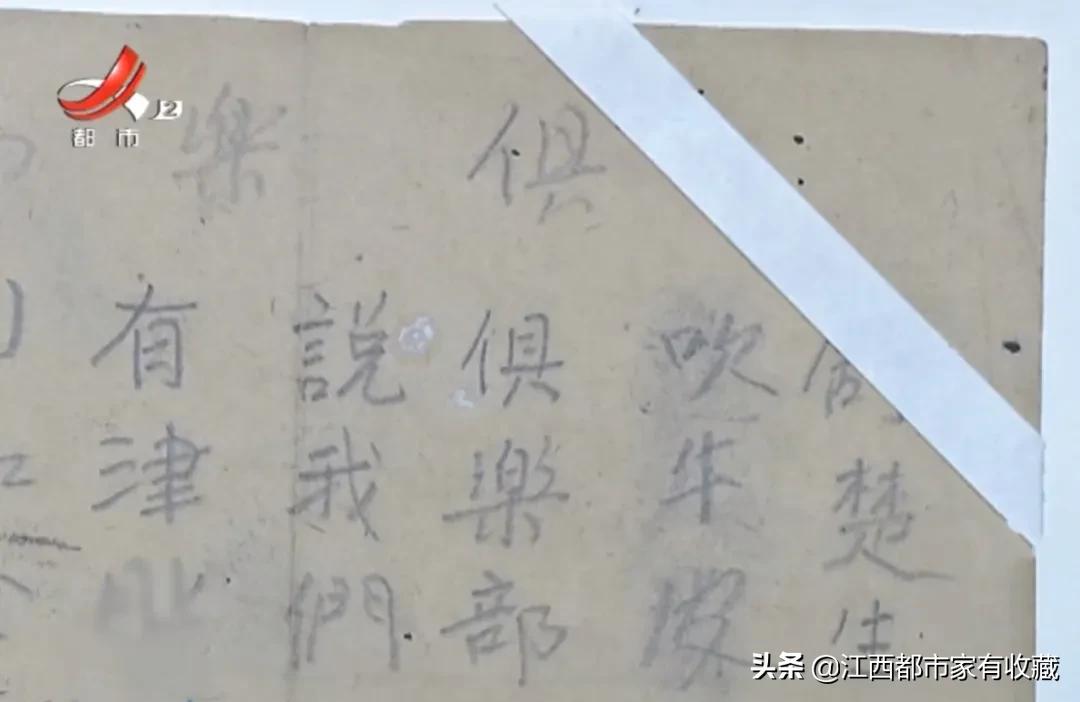 都市 J2
俱樂
楚生
吹牛
俱樂部
說我們
有津
头条 @江西都市家有收藏